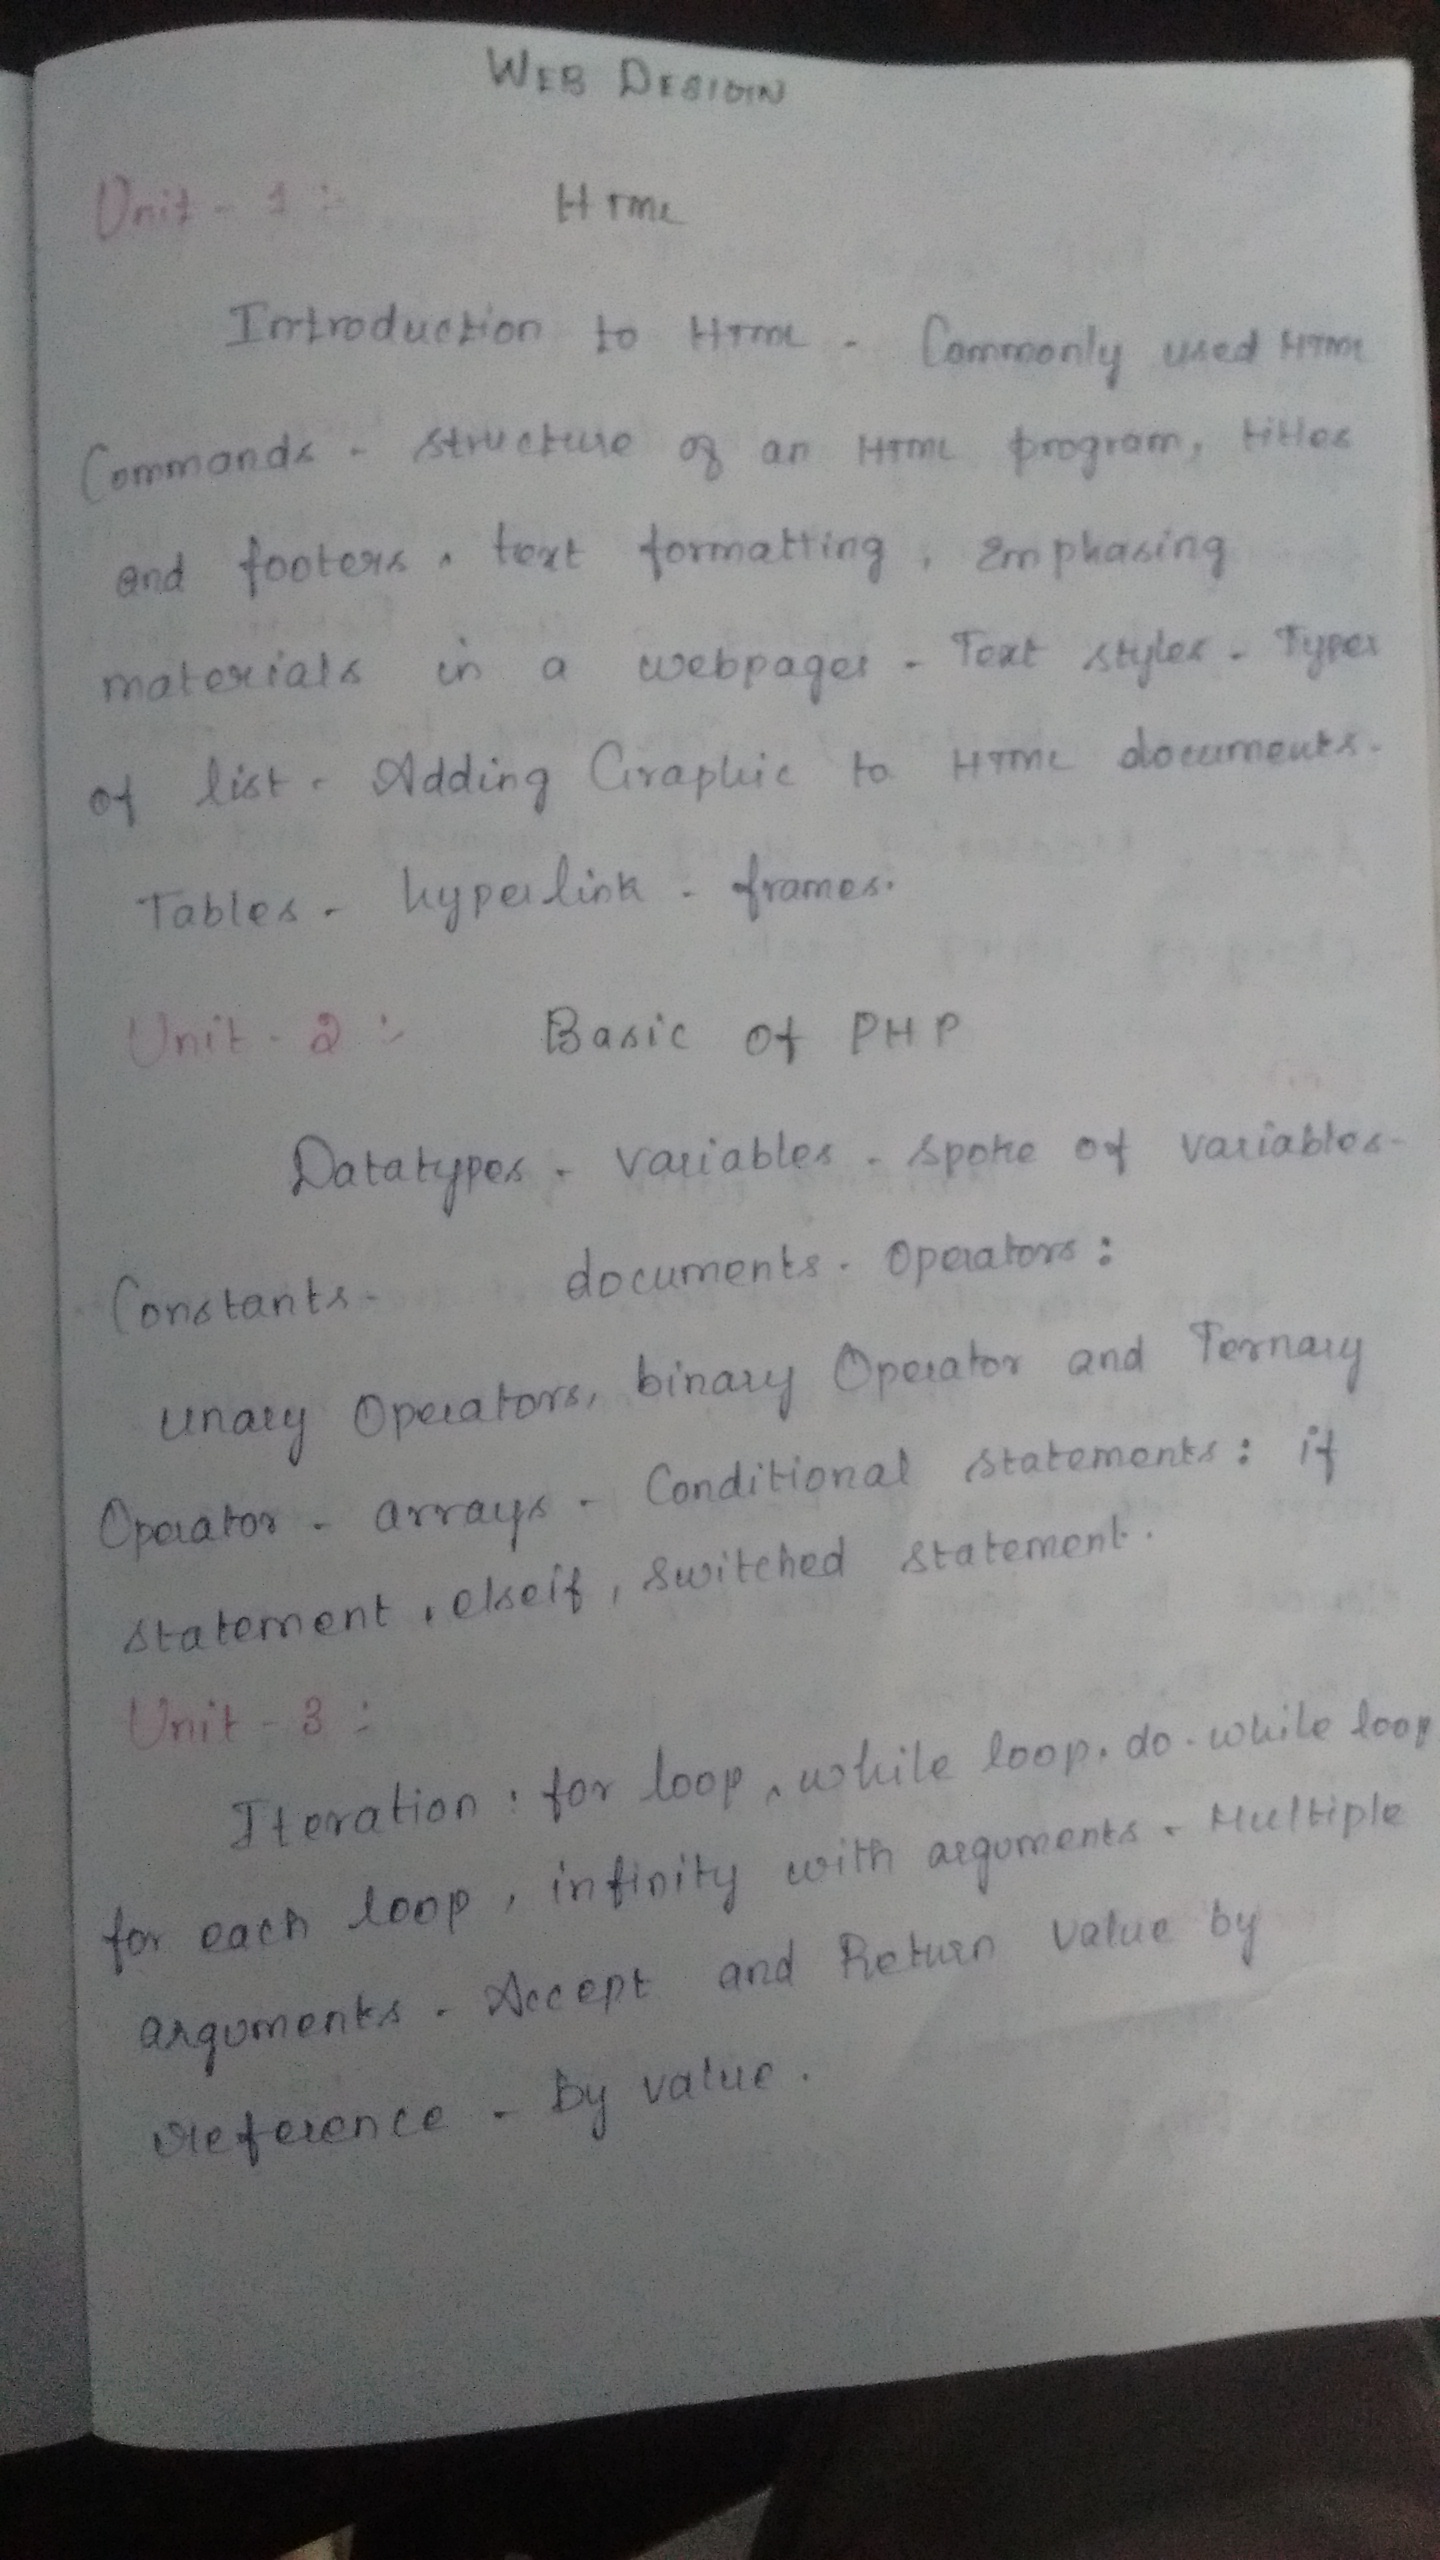 WEB DESIGIN
Unit - 1 :- HTML
Introduction to HTML - Commonly used HTML
Commands - structure of an HTML program, titles
and footers, text formatting, Emphasing
materials in a webpages - Text styles - Types
of list - Adding Graphic to HTML documents -
Tables - hyperlink - frames.
Unit - 2 :- Basic of PHP
Datatypes - Variables - Spoke of variables -
Constants - documents - Operators :
unary Operators, binary Operator and Ternary
Operator - arrays - Conditional statements : if
statement, elseif, switched statement.
Unit - 3 :
Iteration : for loop, while loop, do-while loop
for each loop, infinity with arguments - Multiple
arguments - Accept and Return value by
reference - By value.